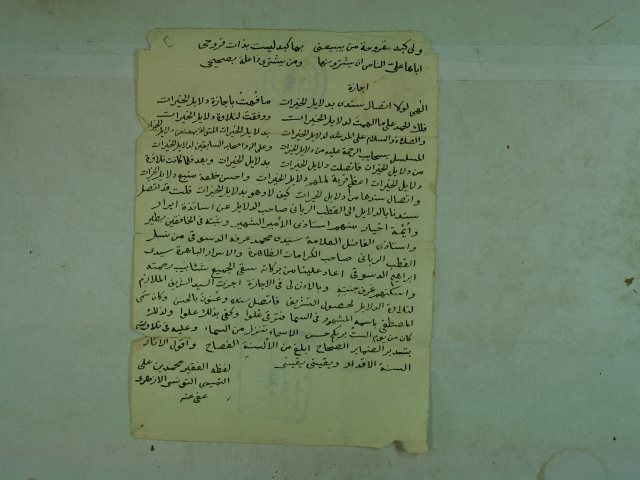 ولى كبد مقروحة من يبيعنى بها كبد ليست بذات قروحى
اباها على الناس ان يشترونها ومن يشترى ذا علة بصحيحى
اجازة
الهى لولا اتصال سندى بدلايل الخيرات ما فهت باجازة دلايل الخيرات
فلك الحمد على ما الهمت لدلايل الخيرات ووفقت لتلاوة دلايل الخيرات
والصلاة والسلام على المرشد لدلايل الخيرات بدلايل الخيرات
المسلسل سحايب الرحمة عليه من دلايل الخيرات وعلى اله واصحابه السابقين لدلايل الخيرات
من دلايل الخيرات فاتصلت دلايل الخيرات بدلايل الخيرات وبعد فلما كانت تلاوة
دلايل الخيرات اعظم قربة لملهم دلايل الخيرات واحسن خلعة دلايل الخيرات
واتصال سندها من دلايل الخيرات كيف لا وهو بدلايل الخيرات قلت قد اتصل
سندنا بالدلايل الى القطب الربانى صاحب الدلايل عن اساتذة ابرار
وائمة اخيار منهم استاذى الامير الشهير وثبته فى الخافقين يطير
واستاذى الفاضل العلامة سيدى محمد عرفة الدسوقى من نسل
القطب الربانى صاحب الكرامات الظاهرة والاسرار الباهرة سيدى
ابراهيم الدسوقى اعاد علينا من بركاته وسقى الجميع شئابيب رحمته
واسكنهم غرف جنته وبالاذن لى فى الاجازة اجزت السيد الشريف الملازم
لتلاوة الدلايل لحصول التشريف فاتصل سنده وعنون بالحسن وكان سمى
المصطفى باسمه المشهور فى السما فترقى علوا وكفى بذلك علوا ولذلك
كان من يوم الست بربكم حسن الاسماء تنزل من السماء وعليه فى تلاوته
بتدبر الضماير الصحاح ابلغ من الالسنة الفصاح واقول الاثار
السنة الاقدار ويقينى يقينى
لفظه الفقير محمد بن على
التميمى التونسى الازهرى
عفى عنه